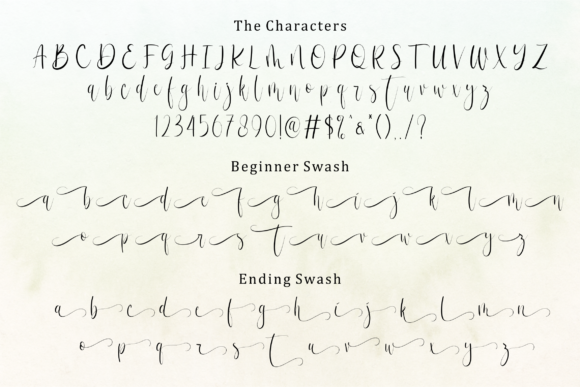 The Characters
ABCDEFGHIJKLMNOPQRSTUVWXYZ
abcdefghijklmnopqrstuvwxyz
1234567890!@#$%^&*()_./?
Beginner Swash
abcdefghijklmn
opqrstuvwxyz
Ending Swash
abcdefghijklmn
opqrstuvwxyz